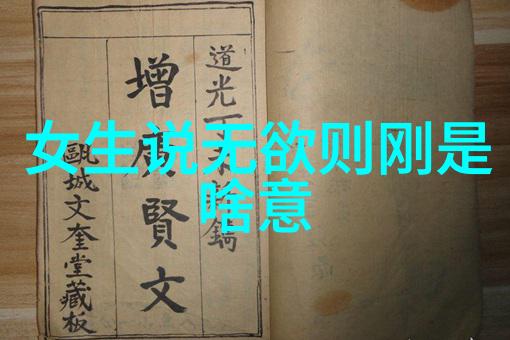 女生说无欲则刚是
啥意
道光丁未新鐫
增廣賢文
甌城文奎堂藏板